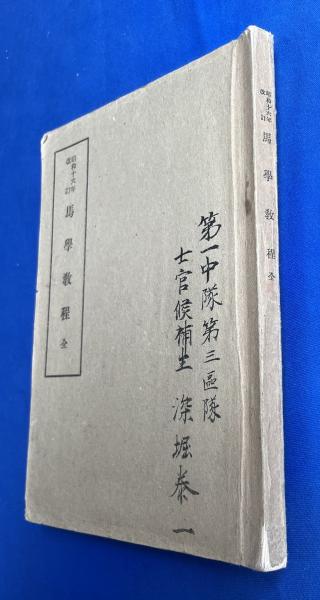 昭和十六年
改訂
馬學教程 全
第一中隊第三區隊
士官候補生 深堀泰一
昭和十六年
改訂
馬學教程 全